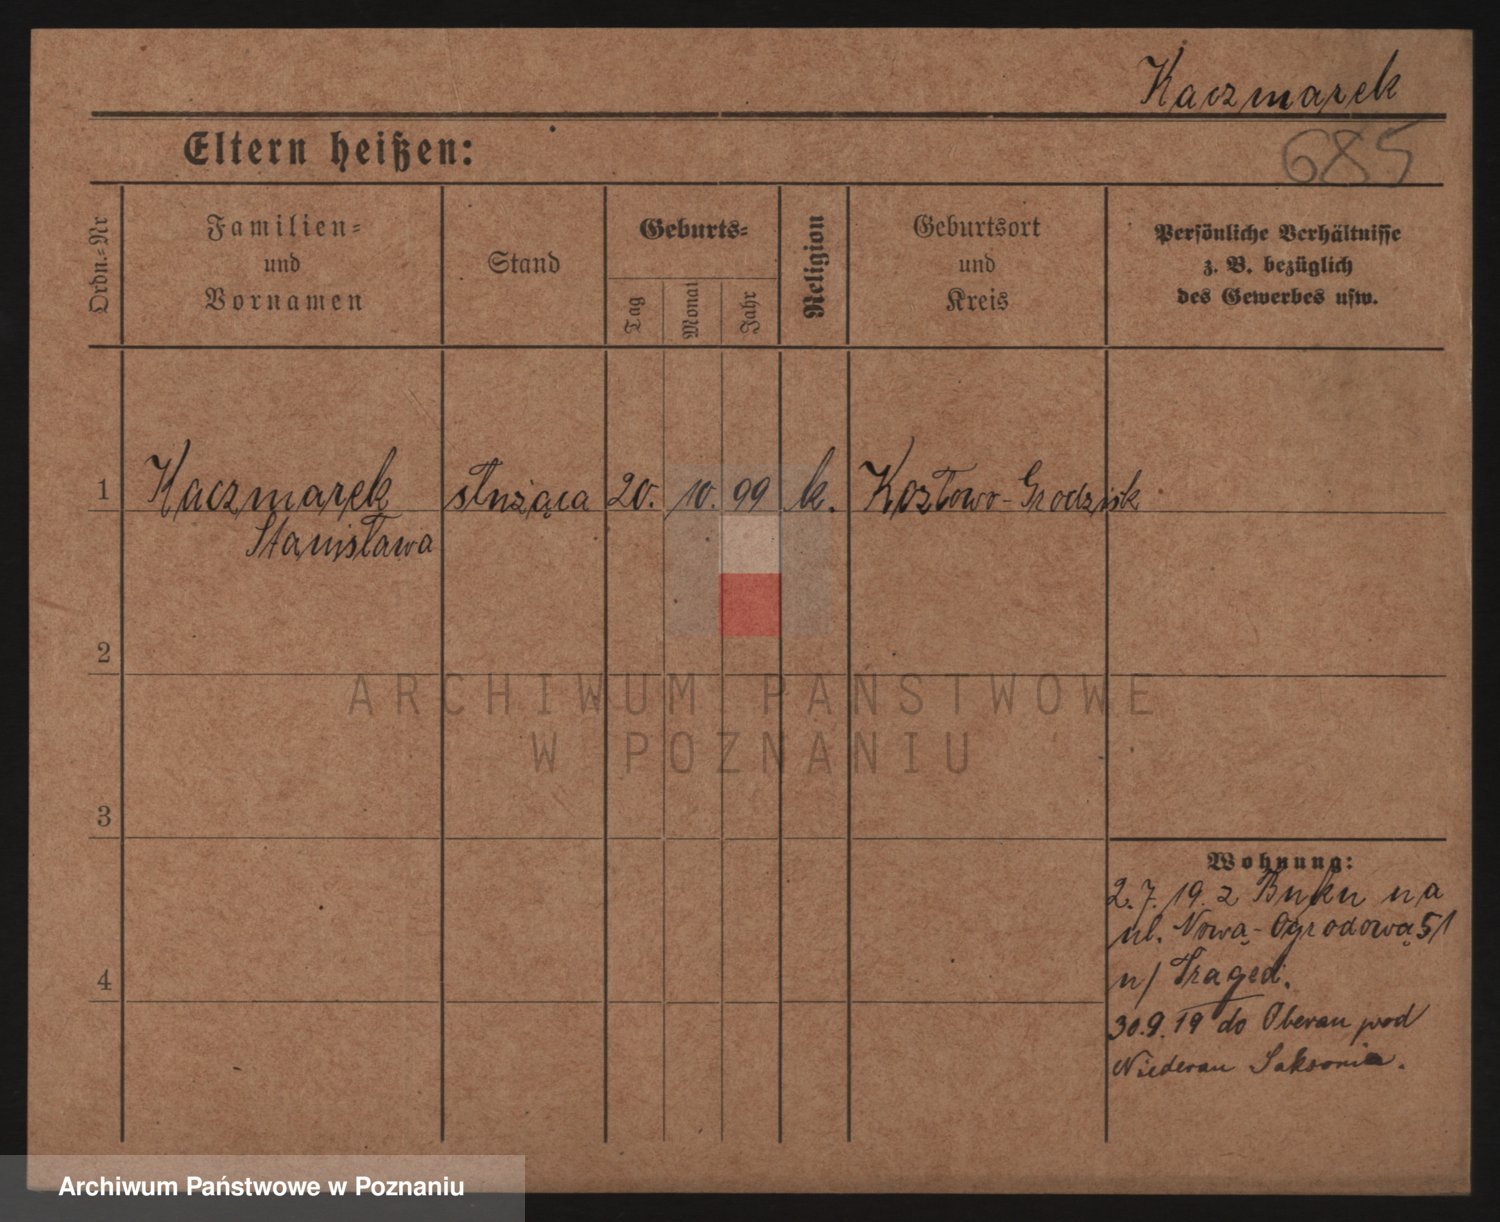 Kaczmarek
685
Eltern heißen:
Ordn.-Nr
Familien-
und
Vornamen
Stand
Geburts-
Tag
Monat
Jahr
Religion
Geburtsort
und
Kreis
Persönliche Verhältnisse
z. B. bezüglich
des Gewerbes usw.
1
Kaczmarek
Stanisława
służąca
20.
10.
99
k.
Kozłowo-Grodzisk
2
3
4
Wohnung:
2.7.19. z Buku na
ul. Nowa-Ogrodową 51
n/
30.9.19 do Oberau pod
Niederau Saksonia.
ARCHIWUM PAŃSTWOWE
W POZNANIU
Archiwum Państwowe w Poznaniu